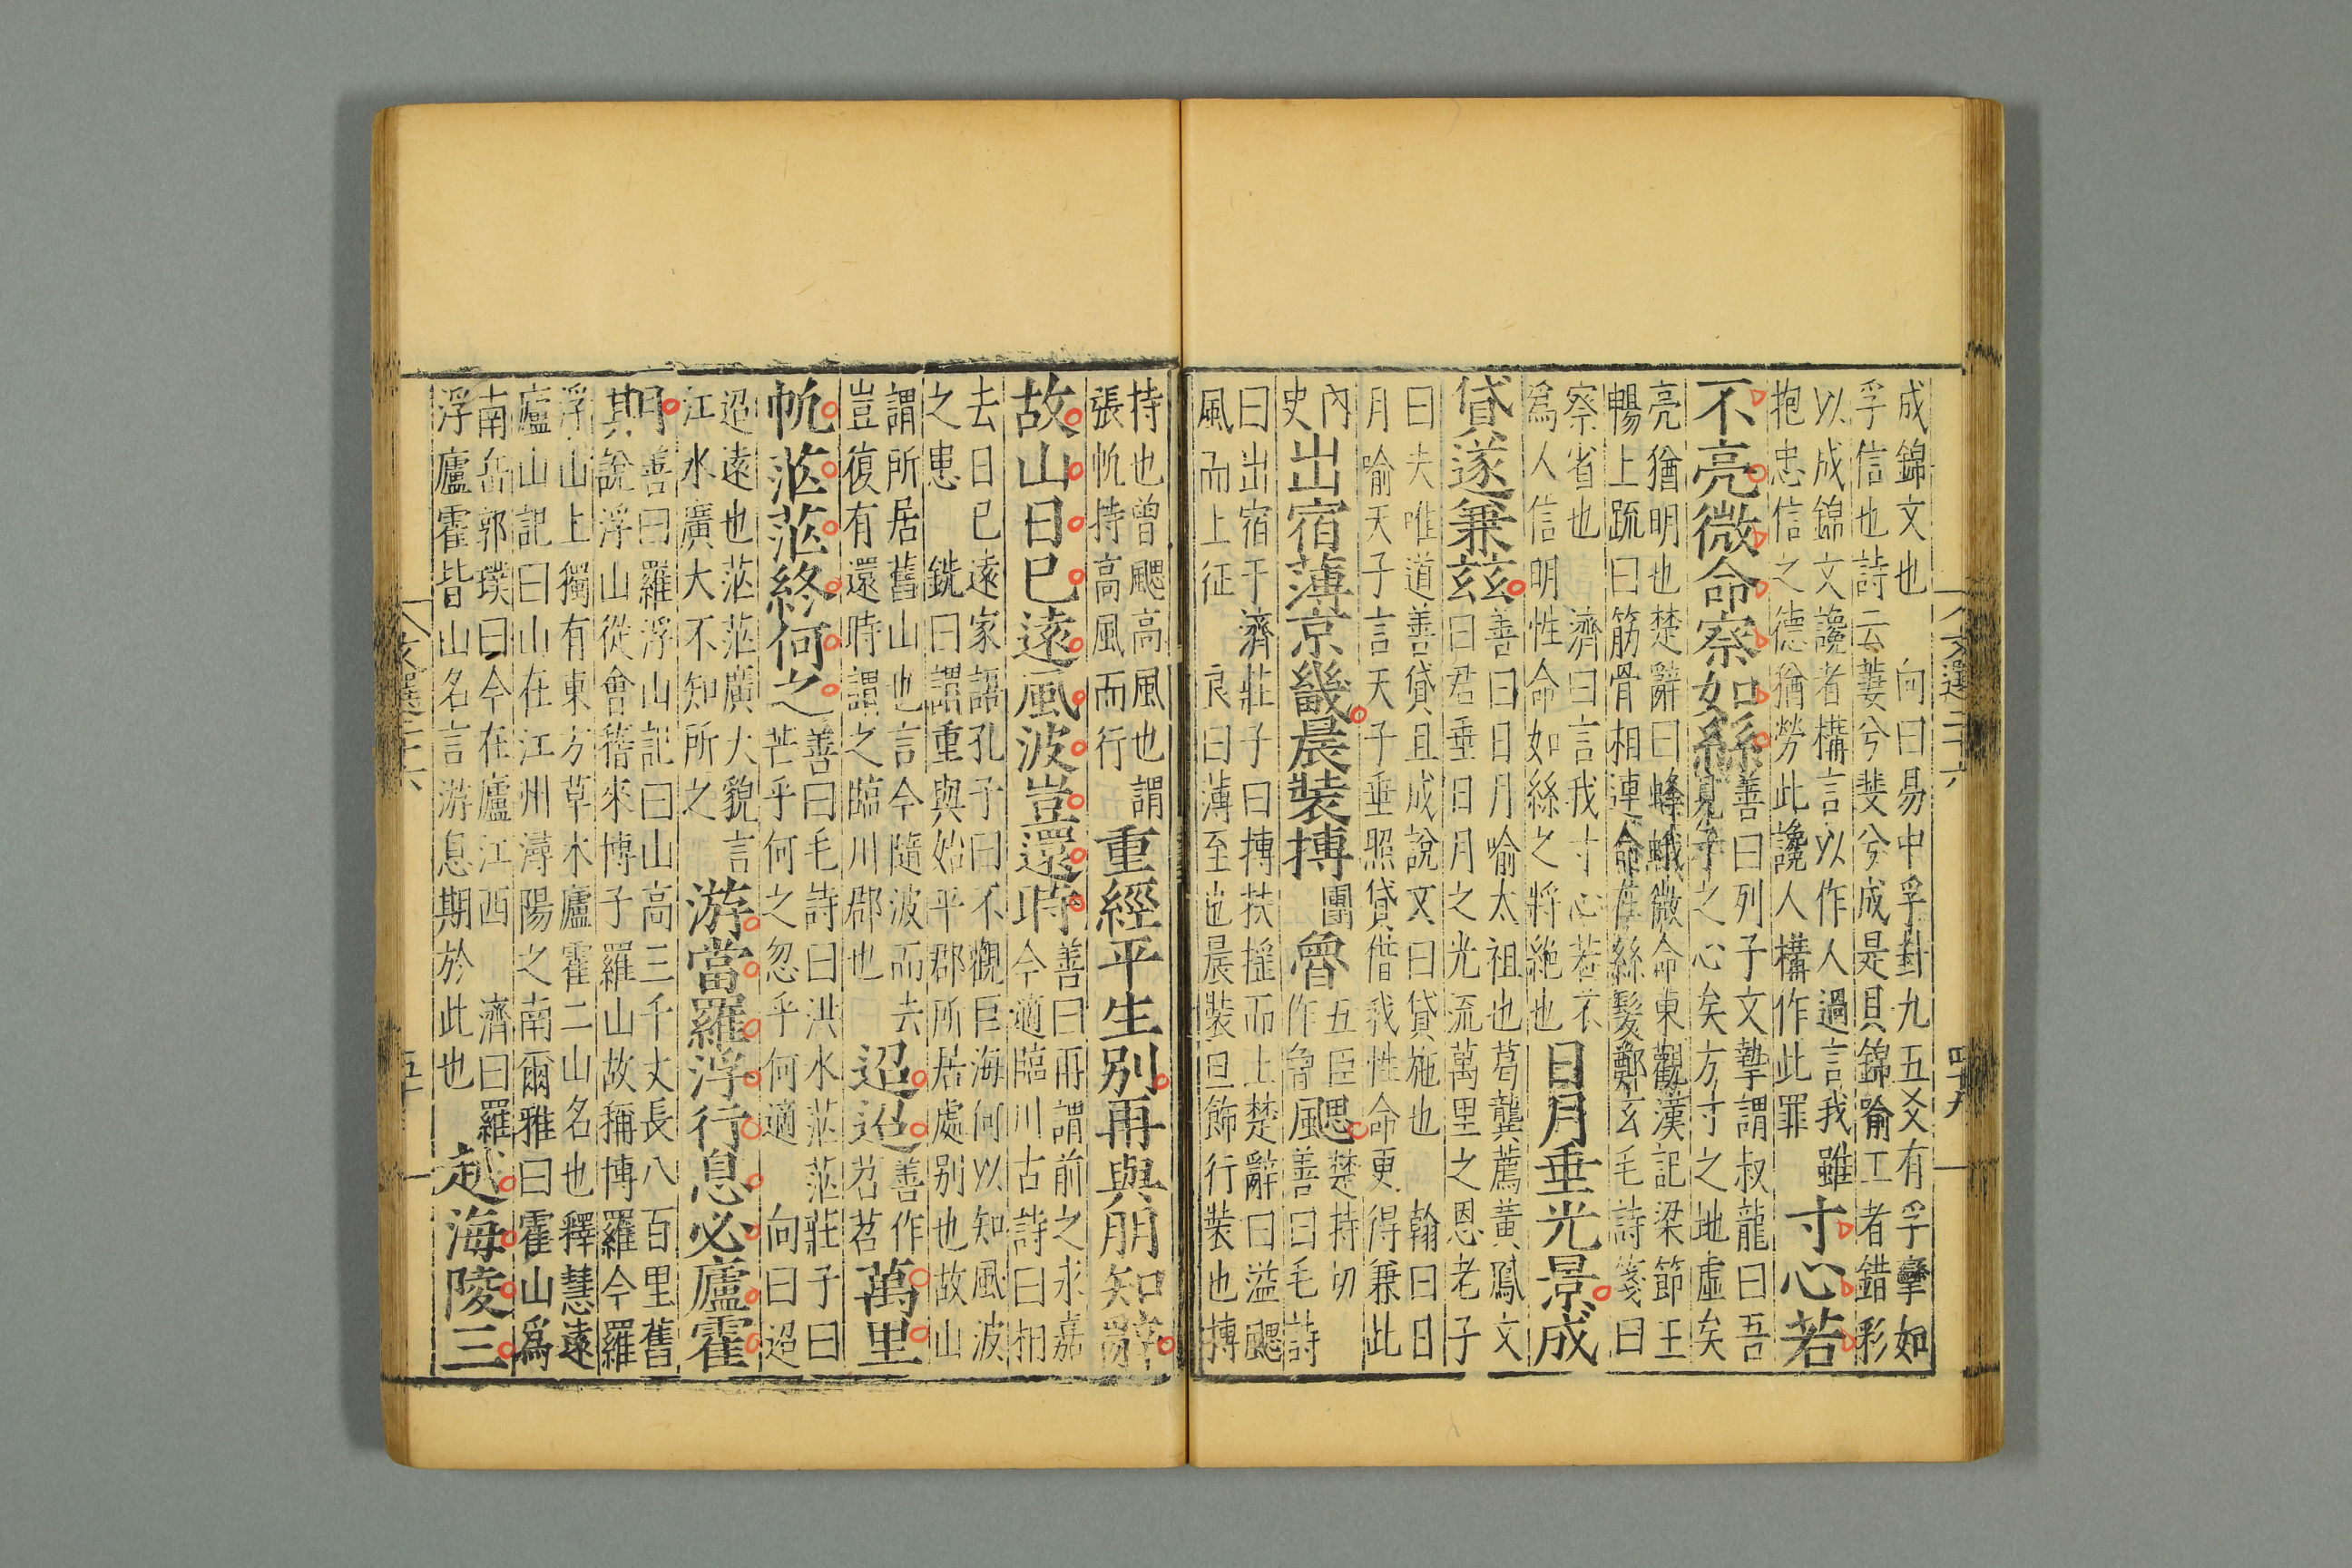 成錦文也　向曰易中孚卦九五爻有孚攣如
孚信也詩云萋兮斐兮成是貝錦喻工者錯彩
以成錦文讒者構言以作人過言我雖
抱忠信之德猶勞此讒人構作此罪
寸心若
不亮微命察如絲
善曰列子文摯謂叔龍曰吾
見子之心矣方寸之地虛矣
亮猶明也楚辭曰蜂蛾微命東觀漢記梁節王
暢上疏曰筋骨相連命在絲髮鄭玄毛詩箋曰
察省也　濟曰言我寸心若不
為人信明性命如絲之將絶也
日月垂光景成
貸遂兼茲
善曰日月喻太祖也葛龔薦黃鳳文
曰君垂日月之光流萬里之恩老子
曰夫唯道善貸且成說文曰貸施也　翰曰日
月喻天子言天子垂照貸借我性命更得兼此
內
史
出宿薄京畿晨裝摶
團
曾
五臣
作曾
颸楚持切
風善曰毛詩
曰出宿于濟莊子曰摶扶搖而上楚辭曰溢颸
風而上征　良曰薄至也晨裝旦飾行裝也摶
文選二十六　四十九
持也曾颸高風也謂
張帆持高風而行
重經平生別再與朋知辭
故山日已遠風波豈還時
善曰再謂前之永嘉
今適臨川古詩曰相
去日已遠家語孔子曰不觀巨海何以知風波
之患　銑曰謂重與始平郡所居處别也故山
謂所居舊山也言今隨波而去
豈復有還時謂之臨川郡也
迢迢
善作
苕苕
萬里
帆茫茫終何之
善曰毛詩曰洪水茫茫莊子曰
芒乎何之忽乎何適　向曰迢
迢遠也茫茫廣大貌言
江水廣大不知所之
游當羅浮行息必廬霍
期
善曰羅浮山記曰山高三千丈長八百里舊
其說浮山從會稽來博子羅山故稱博羅今羅
浮山上獨有東方草木廬霍二山名也釋慧遠
廬山記曰山在江州潯陽之南爾雅曰霍山為
南岳郭璞曰今在廬江西　濟曰羅
浮廬霍皆山名言游息期於此也
越海陵三
文選二十六　五十